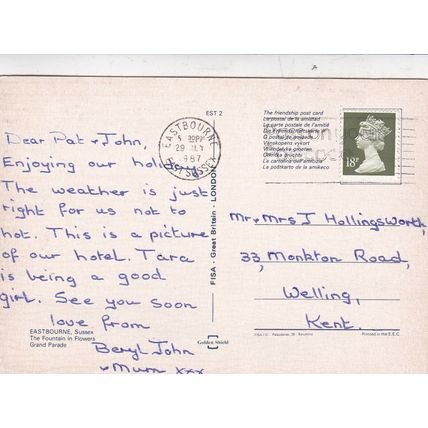 Dear Pat & John,
Enjoying our holiday
The weather is just
right for us not to
hot. This is a picture
of our hotel. Tara
is being a good
girl. See you soon
love from
Beryl John
& Mum xxx
EASTBOURNE, Sussex
The Fountain in Flowers
Grand Parade
EST 2
FISA - Great Britain - LONDON
Golden Shield
EASTBOURNE
29
1987
EAST SUSSEX
The friendship post card
La postal de la amistad
La carte postale de l'amitié
Vänskapens vykort
La cartolina dell'amicizia
18P
Mr & Mrs J Hollingsworth,
33, Monkton Road,
Welling,
Kent.
Printed in the E.E.C.